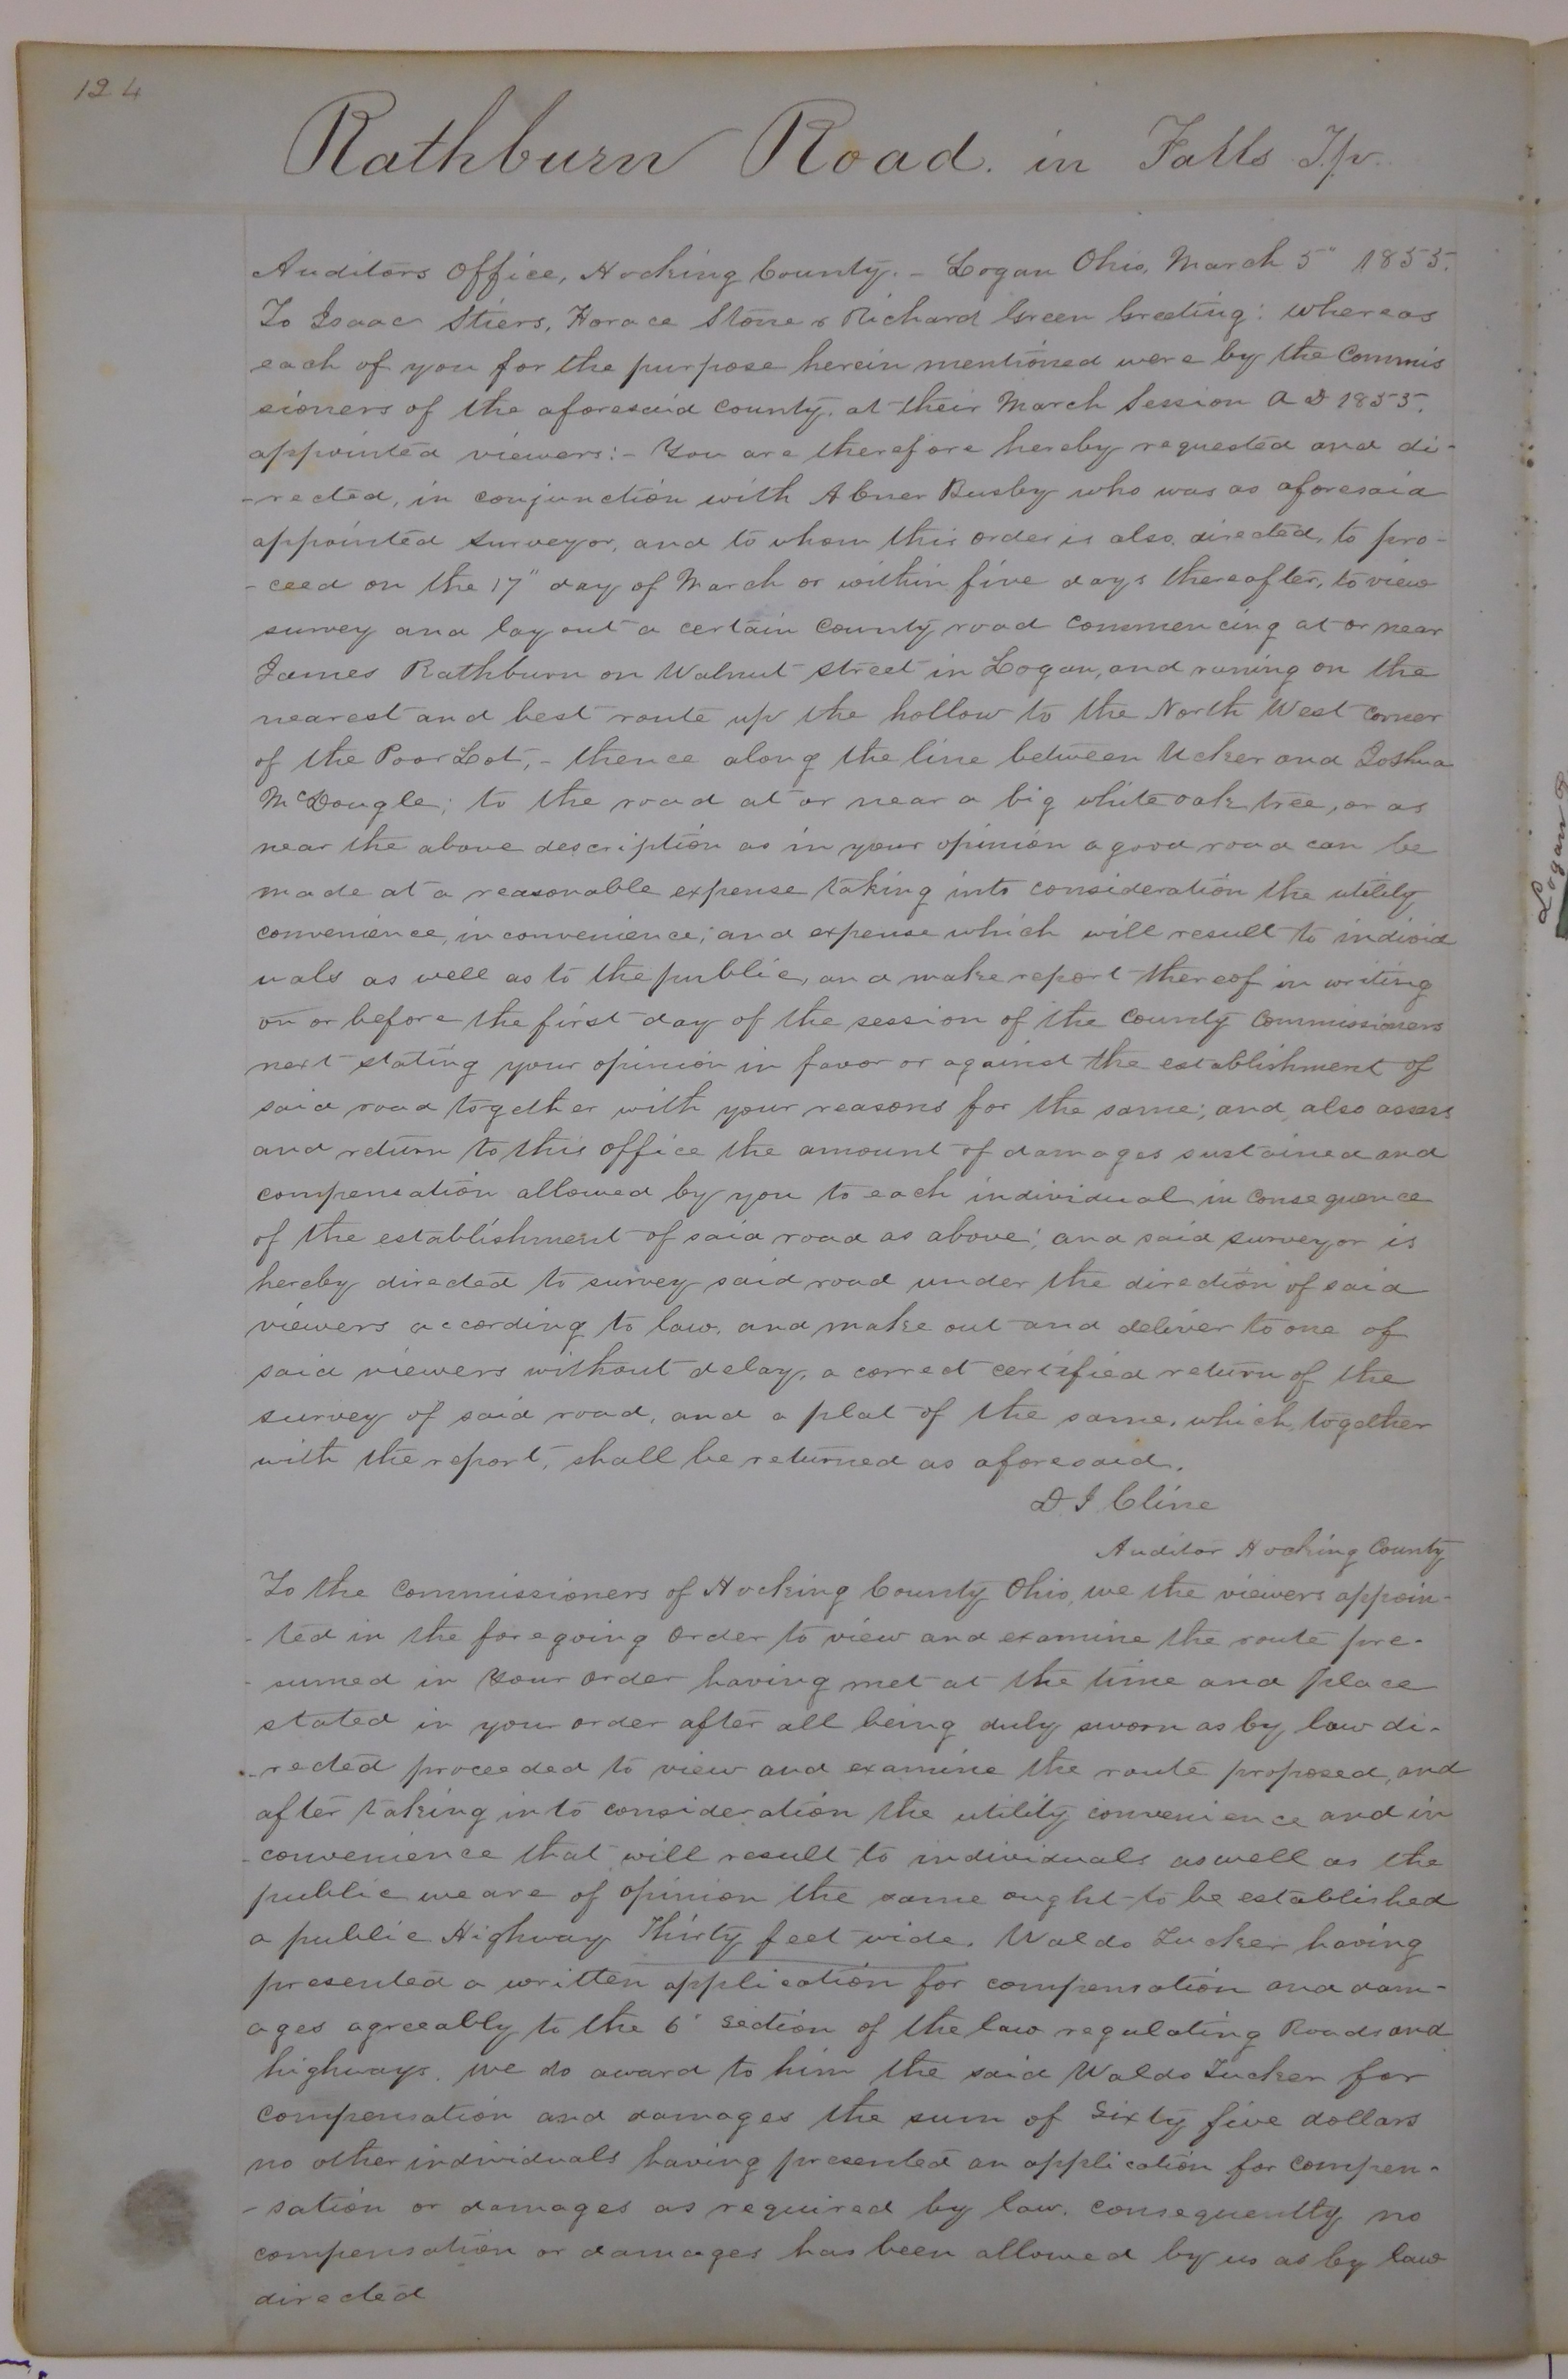 124
Rathburn Road. in Falls Tp.
Auditors Office, Hocking County. - Logan Ohio, March 5" 1855.
To Isaac Stiers, Horace Stone & Richard Green Greeting: whereas
each of you for the purpose herein mentioned were by the Commis
sioners of the aforesaid county. at their March Session A D 1855.
appointed viewers:- You are therefore hereby requested and di-
-rected, in conjunction with Abner Busby who was as aforesaid
appointed surveyor, and to whom this order is also directed, to pro-
-ceed on the 17" day of March or within five days thereafter, to view
survey and lay out a certain County road commencing at or near
James Rathburn on Walnut street in Logan, and runing on the
nearest and best route up the hollow to the North West corner
of the Poor Lot,- thence along the line between Ucker and Joshua
McDougle; to the road at or near a big white oak tree, or as
near the above description as in your opinion a good road can be
made at a reasonable expense taking into consideration the utility
convenience, inconvenience; and expense which will result to individ
uals as well as to the public, and make report thereof in writing
on or before the first day of the session of the County Commissioners
next stating your opinion in favor or against the establishment of
said road together with your reasons for the same; and also assess
and return to this office the amount of damages sustained and
compensation allowed by you to each individual in consequence
of the establishment of said road as above; and said surveyor is
hereby directed to survey said road under the direction of said
viewers according to law. and make out and deliver to one of
said viewers without delay, a correct certified return of the
survey of said road, and a plat of the same, which, together
with the report, shall be returned as aforesaid.
D. I. Cline
Auditor Hocking County
To the Commissioners of Hocking County Ohio, we the viewers appoin-
-ted in the foregoing order to view and examine the route pre-
-sumed in your order having met at the time and place
stated in your order after all being duly sworn as by law di-
-rected proceeded to view and examine the route proposed, and
after taking into consideration the utility convenience and in
-convenience that will result to individuals aswell as the
public we are of opinion the same ought to be established
a public Highway Thirty feet wide. Waldo Tucker having
presented a written application for compensation and dam-
ages agreeably to the 6' section of the law regulating Roads and
highways. we do award to him the said Waldo Tucker for
compensation and damages the sum of Sixty five dollars
no other individuals having presented an application for compen-
-sation or damages as required by law. consequently no
compensation or damages has been allowed by us as by law
directed
Logan